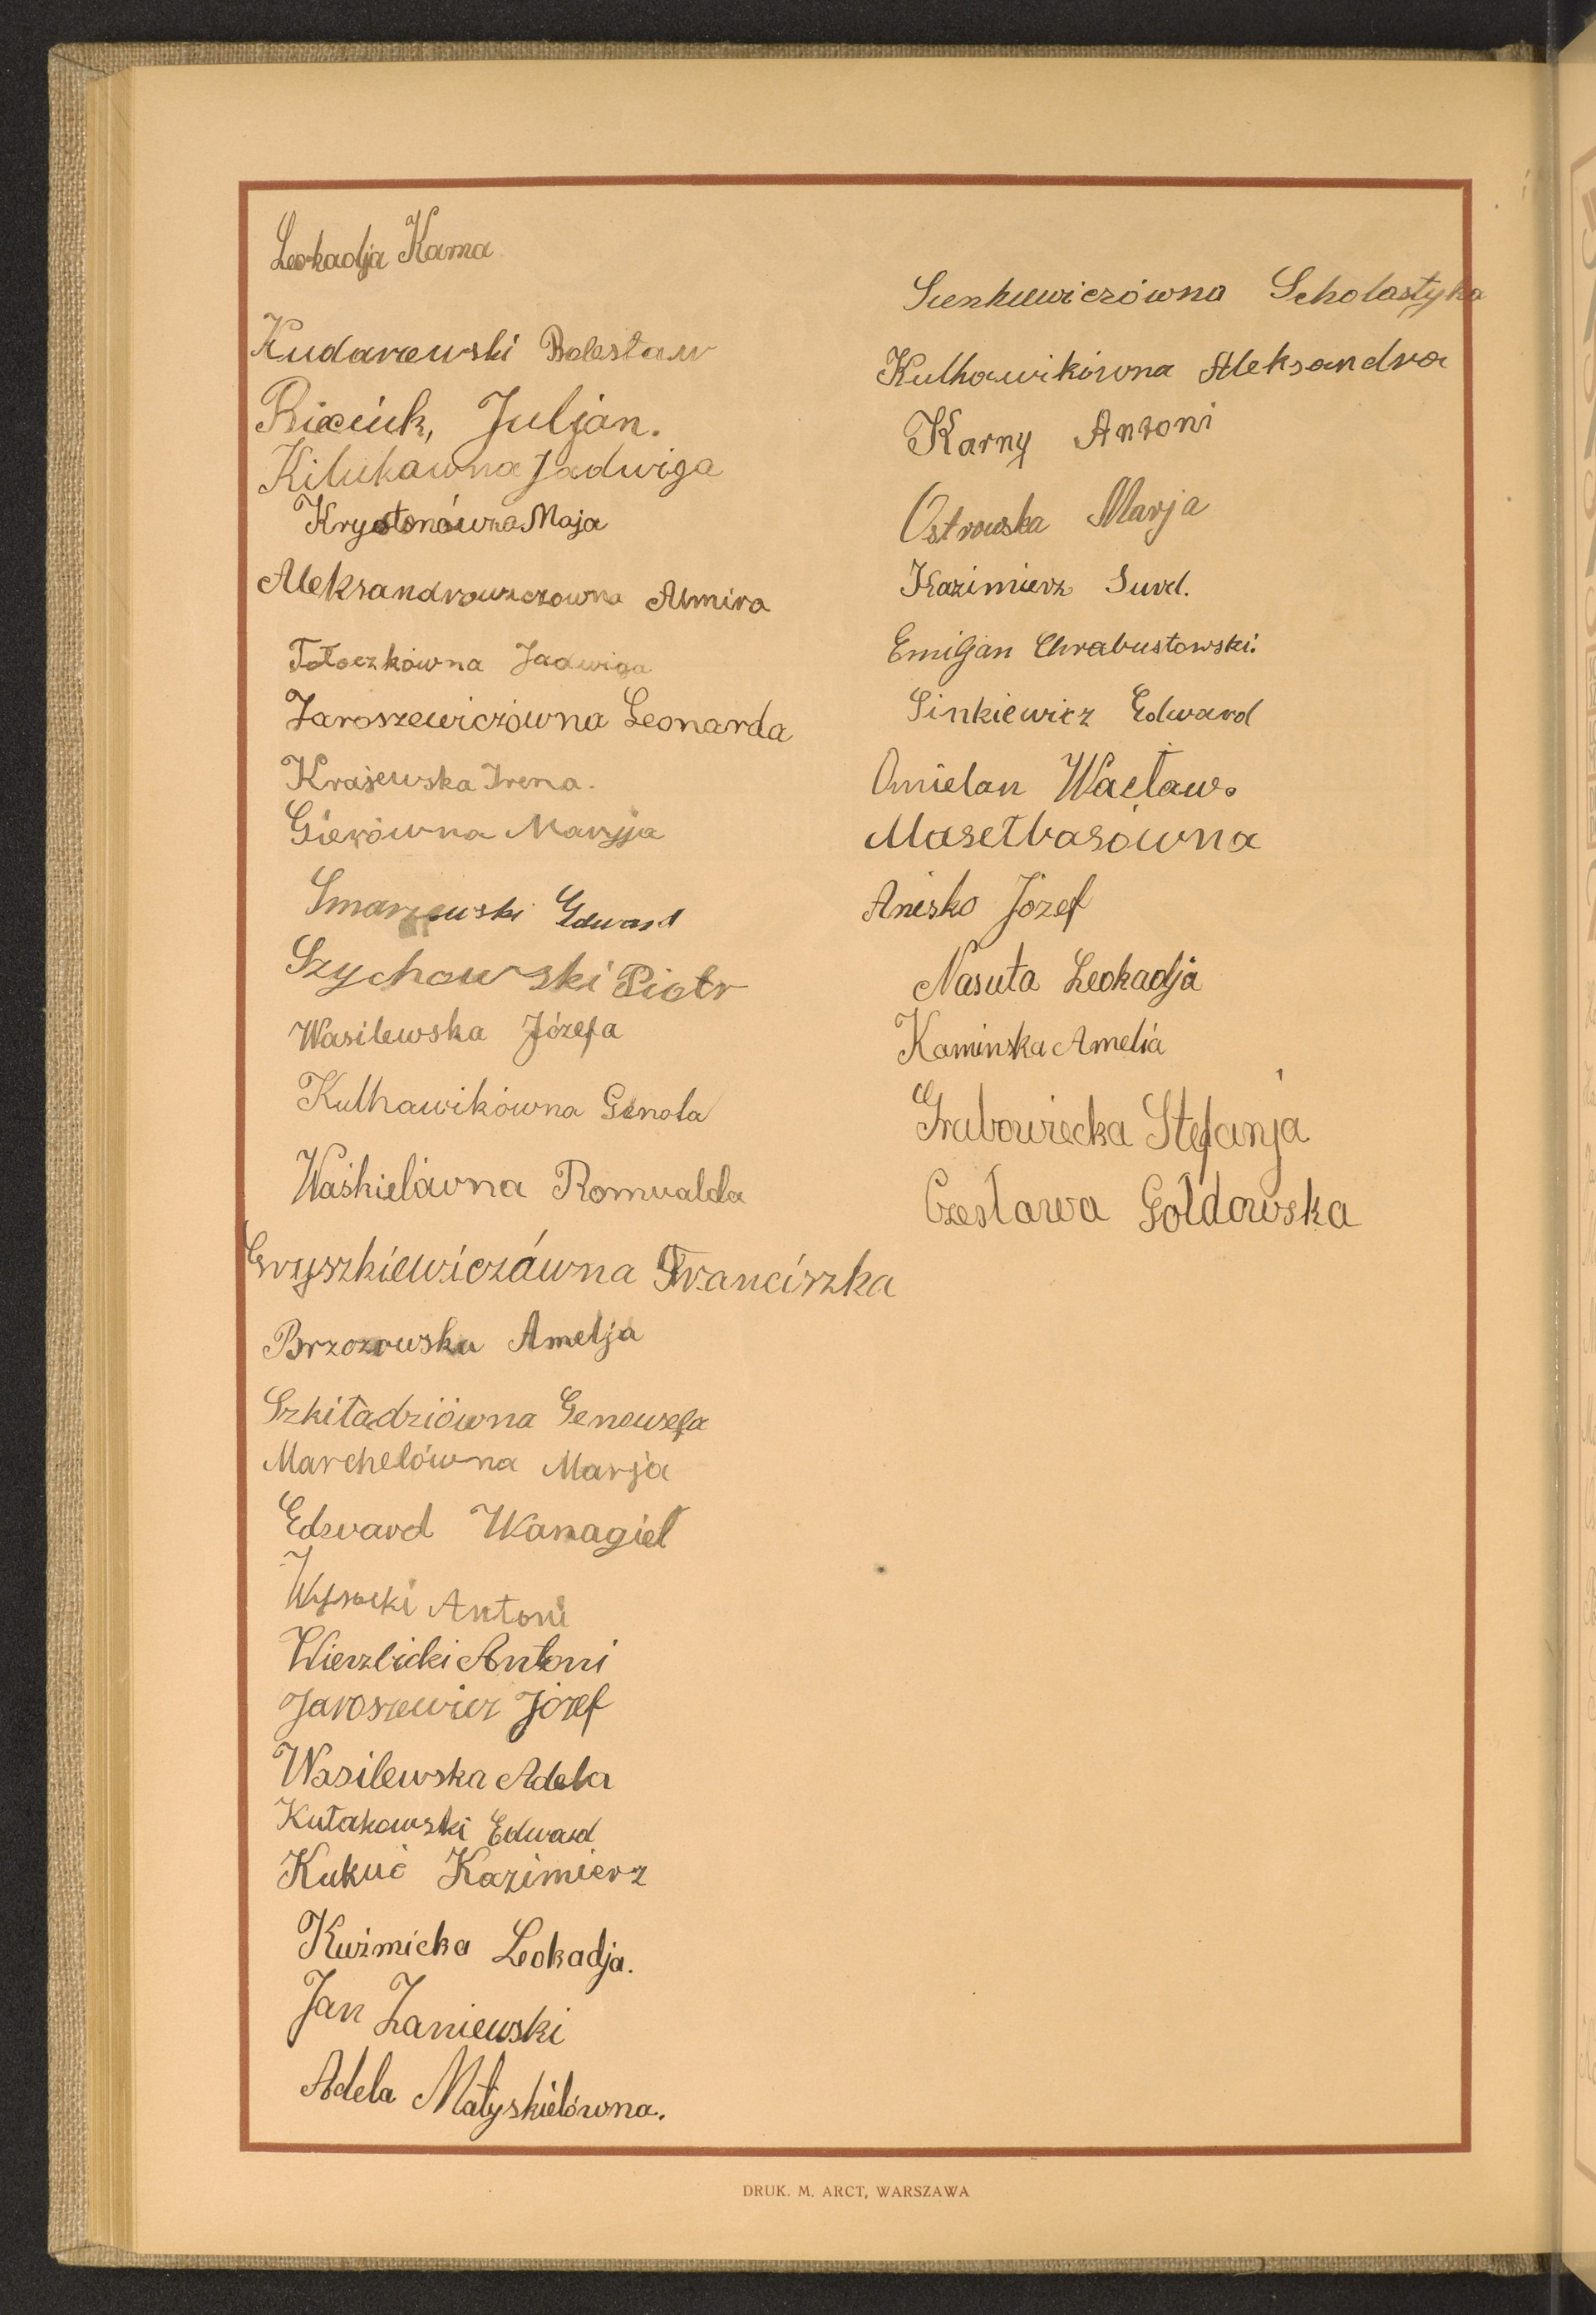 Leokadja Kama
Kudarewski Bolesław
Biaciuk, Juljan.
Kilukawna Jadwiga
Krysztonówna Maja
Aleksandrowiczowna Almira
Tołoczkówna Jadwiga
Jaroszewiczówna Leonarda
Krajewska Irena.
Gierówna Maryja
Smarzewski Edward
Szychowski Piotr
Wasilewska Józefa
Kulhawikówna Genola
Waśkielówna Romualda
Gryszkiewiczówna Franciszka
Brzozowska Amelja
Szkiładziówna Genowefa
Marchelówna Marja
Edward Wanagiel
Wysocki Antoni
Wierzbicki Antoni
Jaroszewicz Józef
Wasilewska Adela
Kułakowski Edward
Kukuć Kazimierz
Kuźmicka Leokadja.
Jan Zaniewski
Adela Małyskielówna.
Sienkiewiczówna Scholastyka
Kulhawikówna Aleksandra
Karny Antoni
Ostrowska Marja
Kazimierz Surd.
Emiljan Chrabustowski.
Sinkiewicz Edward
Omielan Wacław.
Masetbasówna
Anisko Józef
Nasuta Leokadja
Kaminska Amelia
Grabowiecka Stefanja
Czesława Gołdowska
DRUK. M. ARCT, WARSZAWA